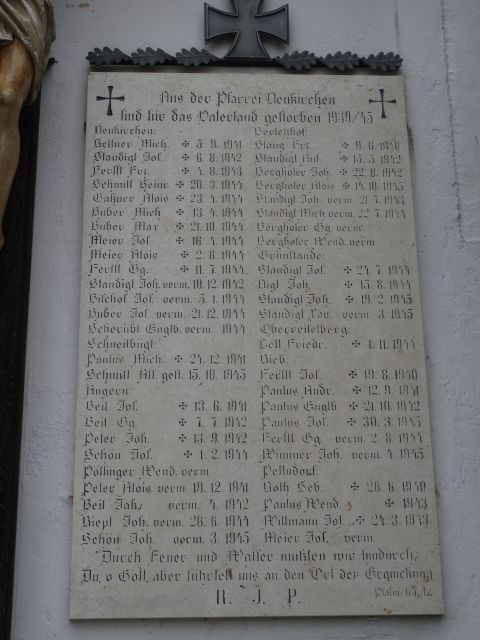 Aus der Pfarrei Neukirchen
sind für das Vaterland gestorben 1939/45
Neukirchen:
Kellner Mich. ✠ 5.9.1941
Staudigl Jos. ✠ 6.8.1942
Ferstl Frz. ✠ 4.8.1943
Schmitt Heinr. ✠ 20.3.1944
Gaßner Alois ✠ 23.4.1944
Huber Mich. ✠ 13.4.1944
Huber Max ✠ 21.10.1944
Meier Jos. ✠ 16.4.1944
Meier Alois ✠ 2.6.1944
Ferstl Gg. ✠ 11.7.1944
Staudigl Joh. verm. 10.12.1942
Bischof Jos. verm. 5.1.1944
Huber Jos. verm. 21.12.1944
Scherubl Englb. verm. 1944
Schneitbügl:
Paulus Mich. ✠ 24.12.1941
Schmitt Alf. gest. 15.10.1945
Angern:
Beil Jos. ✠ 13.6.1941
Beil Gg. ✠ 7.7.1942
Peter Joh. ✠ 13.9.1942
Schön Jos. ✠ 1.2.1944
Pöllinger Wend. verm.
Peter Alois verm. 19.12.1941
Beil Jak. verm. 4.1942
Hiepl Joh. verm. 26.6.1944
Schön Joh. verm. 3.1945
Stang Frz. ✠ 9.6.1940
Staudigl Ant. ✠ 15.5.1942
Berghofer Joh. ✠ 22.8.1942
Berghofer Alois ✠ 14.10.1943
Staudigl Joh. verm. 21.7.1943
Staudigl Mich. verm. 22.7.1944
Berghofer Gg. verm.
Berghofer Wend. verm.
Grünthanke:
Staudigl Jos. ✠ 24.7.1944
Joh. ✠ 15.8.1944
Staudigl Joh. ✠ 19.2.1945
Staudigl Xav. verm. 3.1945
Oberreiselberg:
Friedr. ✠ 1.11.1944
Rieb:
Ferstl Jos. ✠ 19.8.1940
Paulus Andr. ✠ 12.9.1941
Paulus Englb. ✠ 21.10.1942
Paulus Jos. ✠ 30.3.1945
Ferstl Gg. verm. 2.8.1944
Wimmer Joh. verm. 4.1945
Pettndorf:
Roth Seb. ✠ 26.6.1940
Paulus Wend. ✠ 1943
Willmann Jos. ✠ 24.3.1943
Meier Jos. verm.
"Durch Feuer und Wasser mußten wir hindurch,
Du, o Gott, aber führtest uns an den Ort der Erquickung
Psalm 65,12
R. J. P.